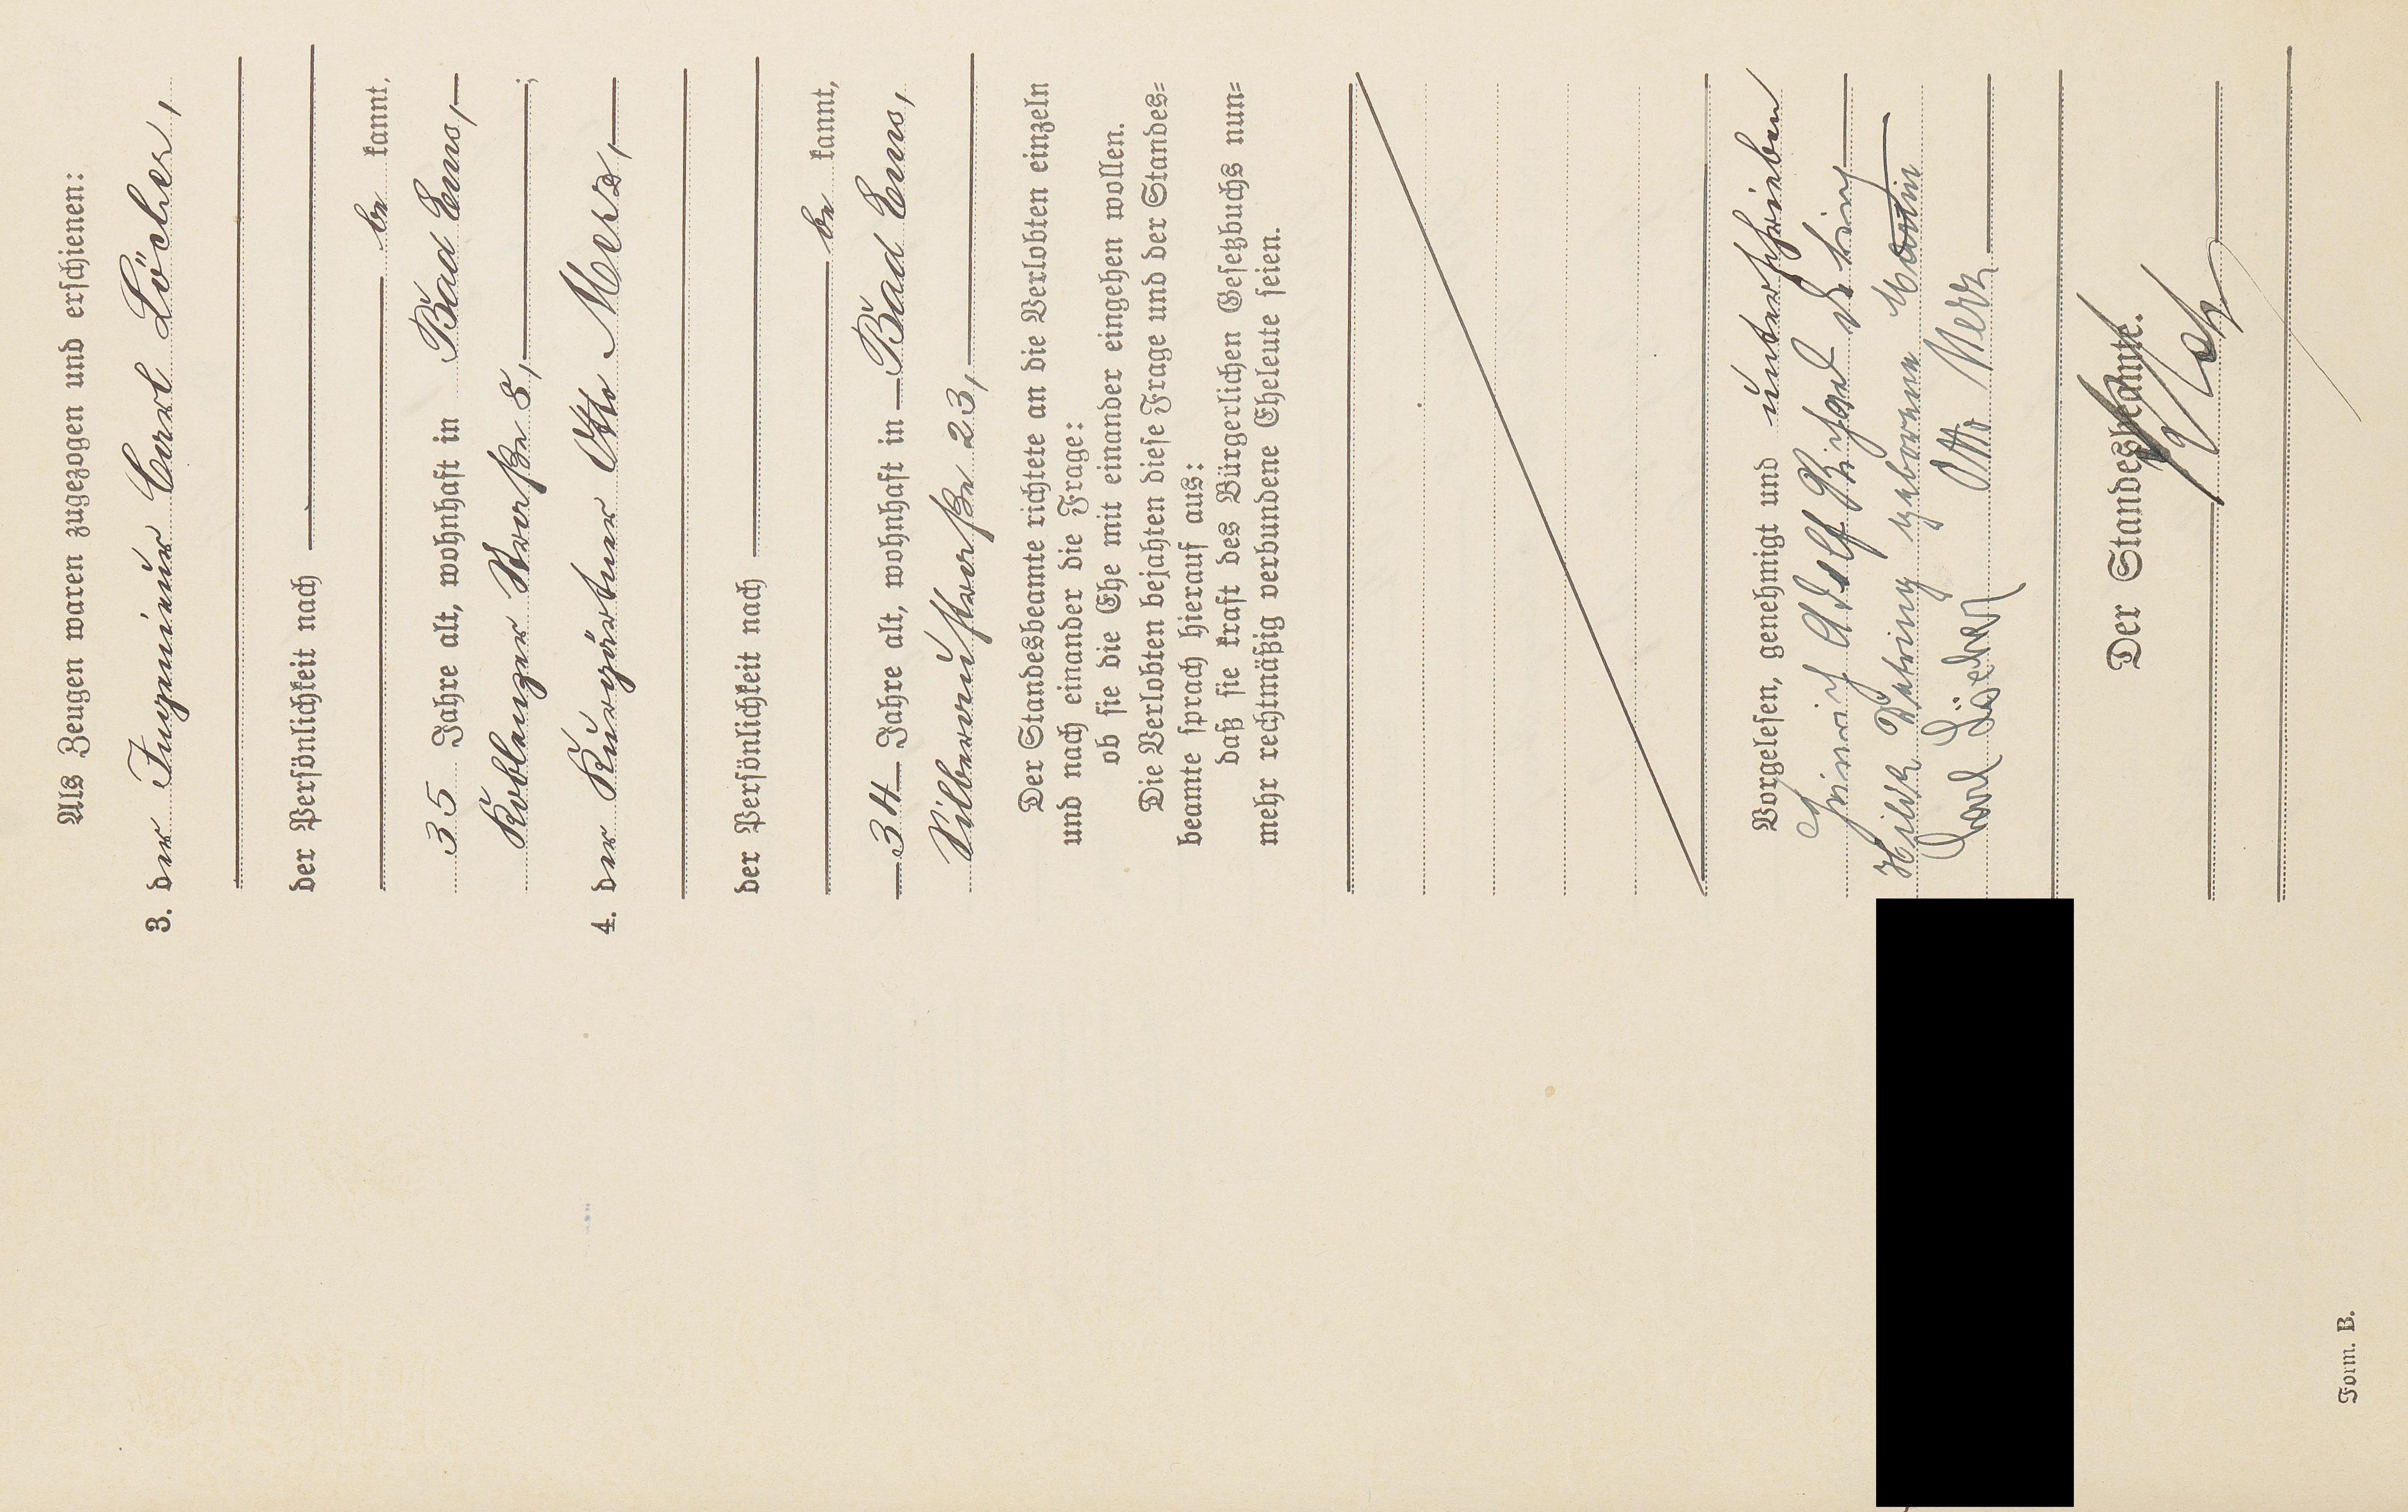 Als Zeugen waren zugezogen und erschienen:
3. der Ingenieur Carl Löcher,
der Persönlichkeit nach
be kannt,
35 Jahre alt, wohnhaft in Bad Ems,
Koblenzer Straße 8, ;
4. der Kurgärtner Otto Merz,
der Persönlichkeit nach
be kannt,
34 Jahre alt, wohnhaft in Bad Ems,
Silberaustraße 23,
Der Standesbeamte richtete an die Verlobten einzeln
und nach einander die Frage:
ob sie die Ehe mit einander eingehen wollen.
Die Verlobten bejahten diese Frage und der Standes=
beamte sprach hierauf aus:
daß sie kraft des Bürgerlichen Gesetzbuchs nun=
mehr rechtmäßig verbundene Eheleute seien.
Vorgelesen, genehmigt und unterschrieben
Heinrich Adolf
geborene
Carl Löcher Otto Merz
Der Standesbeamte.
Form. B.